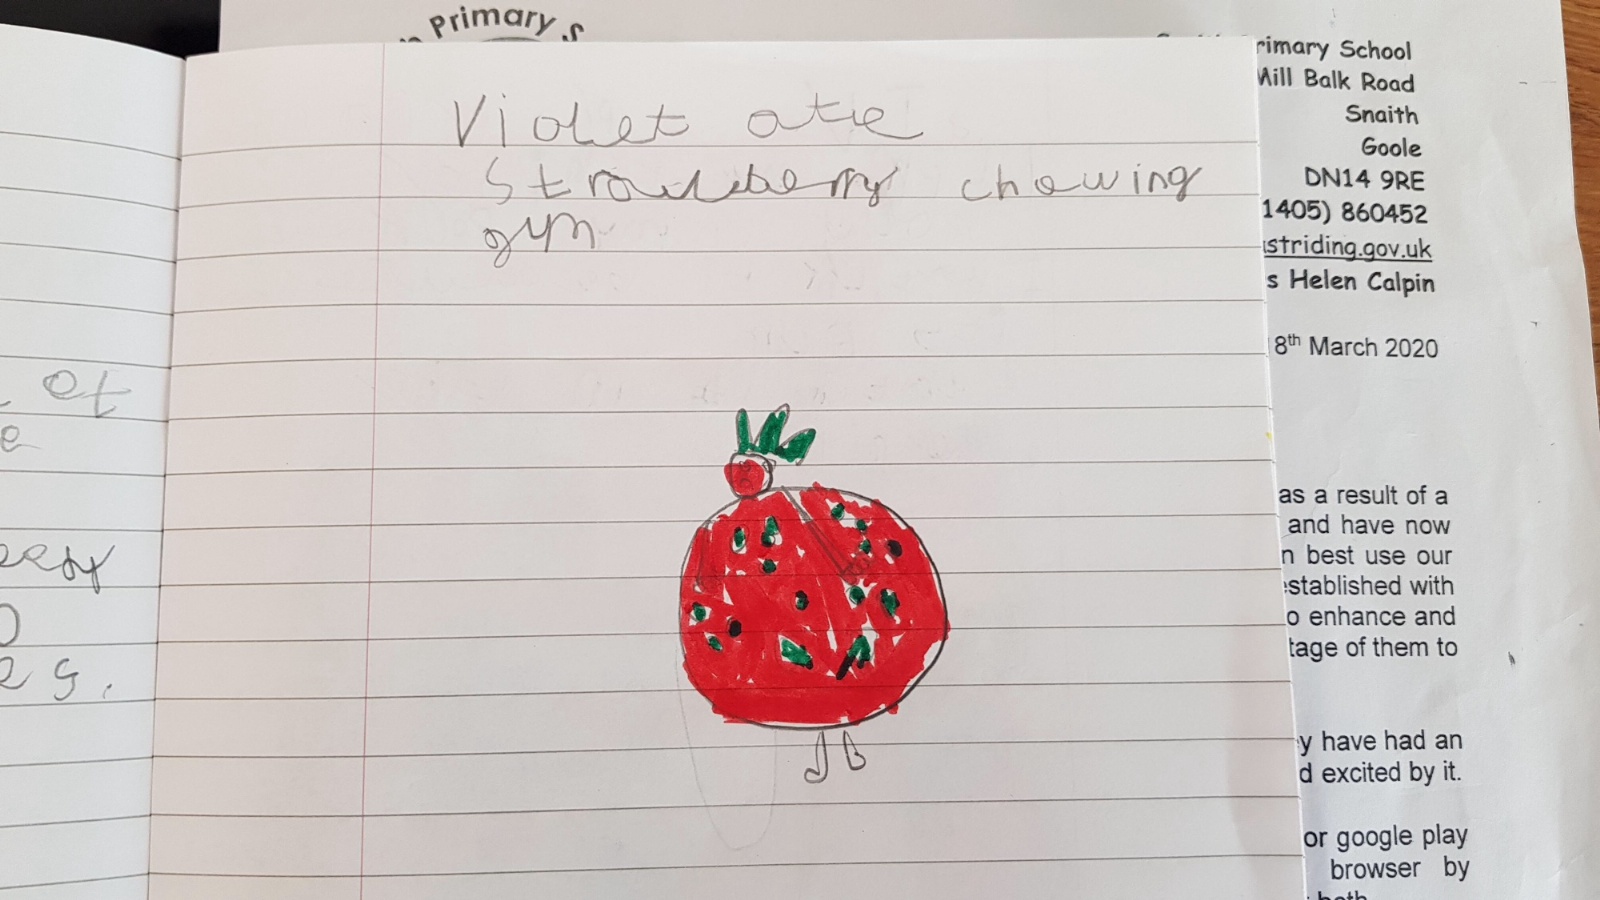 Primary S
rimary School
Mill Balk Road
Snaith
Goole
DN14 9RE
1405) 860452
striding.gov.uk
s Helen Calpin
8th March 2020
Violet ate
Strawberry chewing
gum
et
e
s.
as a result of a
and have now
n best use our
established with
o enhance and
tage of them to
y have had an
d excited by it.
or google play
browser by